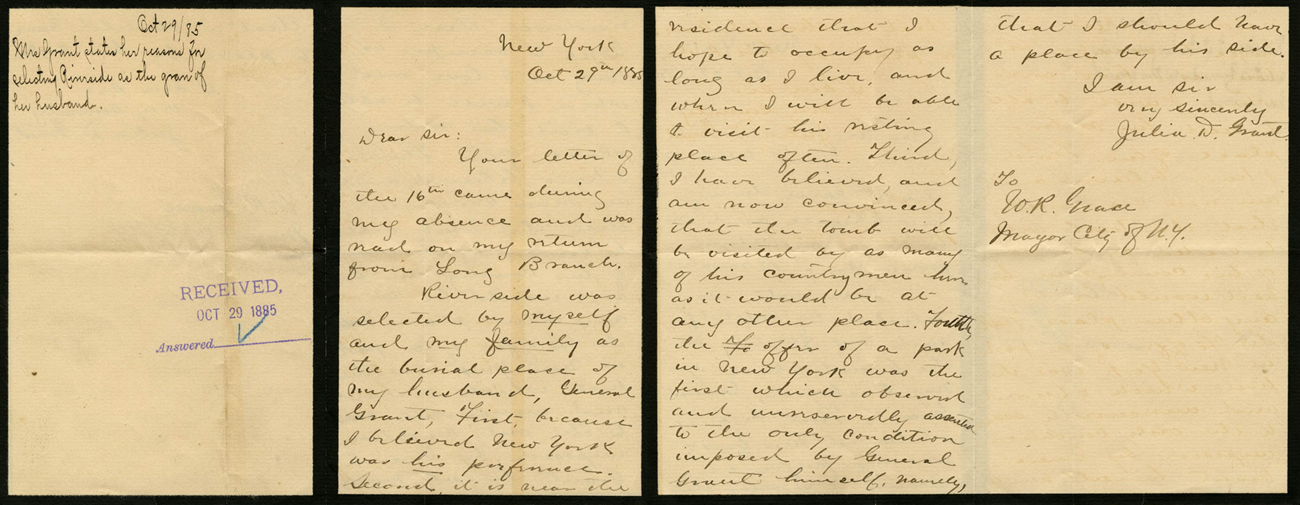 Oct 29/85
Mrs Grant states her reasons for
selecting Riverside as the grave of
her husband.
RECEIVED,
OCT 29 1885
Answered
New York
Oct 29th 1885
Dear Sir:
Your letter of
the 16th came during
my absence and was
read on my return
from Long Branch.
Riverside was
selected by myself
and my family as
the burial place of
my husband, General
Grant, First, because
I believed New York
was his preference.
Second, it is near the
residence that I
hope to occupy as
long as I live, and
where I will be able
to visit his resting
place often. Third,
I have believed, and
am now convinced,
that the tomb will
be visited by as many
of his countrymen here
as it would be at
any other place. Fourth,
the offer of a park
in New York was the
first which observed
and unreservedly assented
to the only condition
imposed by General
Grant himself, namely,
that I should have
a place by his side.
I am sir
very sincerely
Julia D. Grant.
To
W.R. Grace
Mayor City of N.Y.